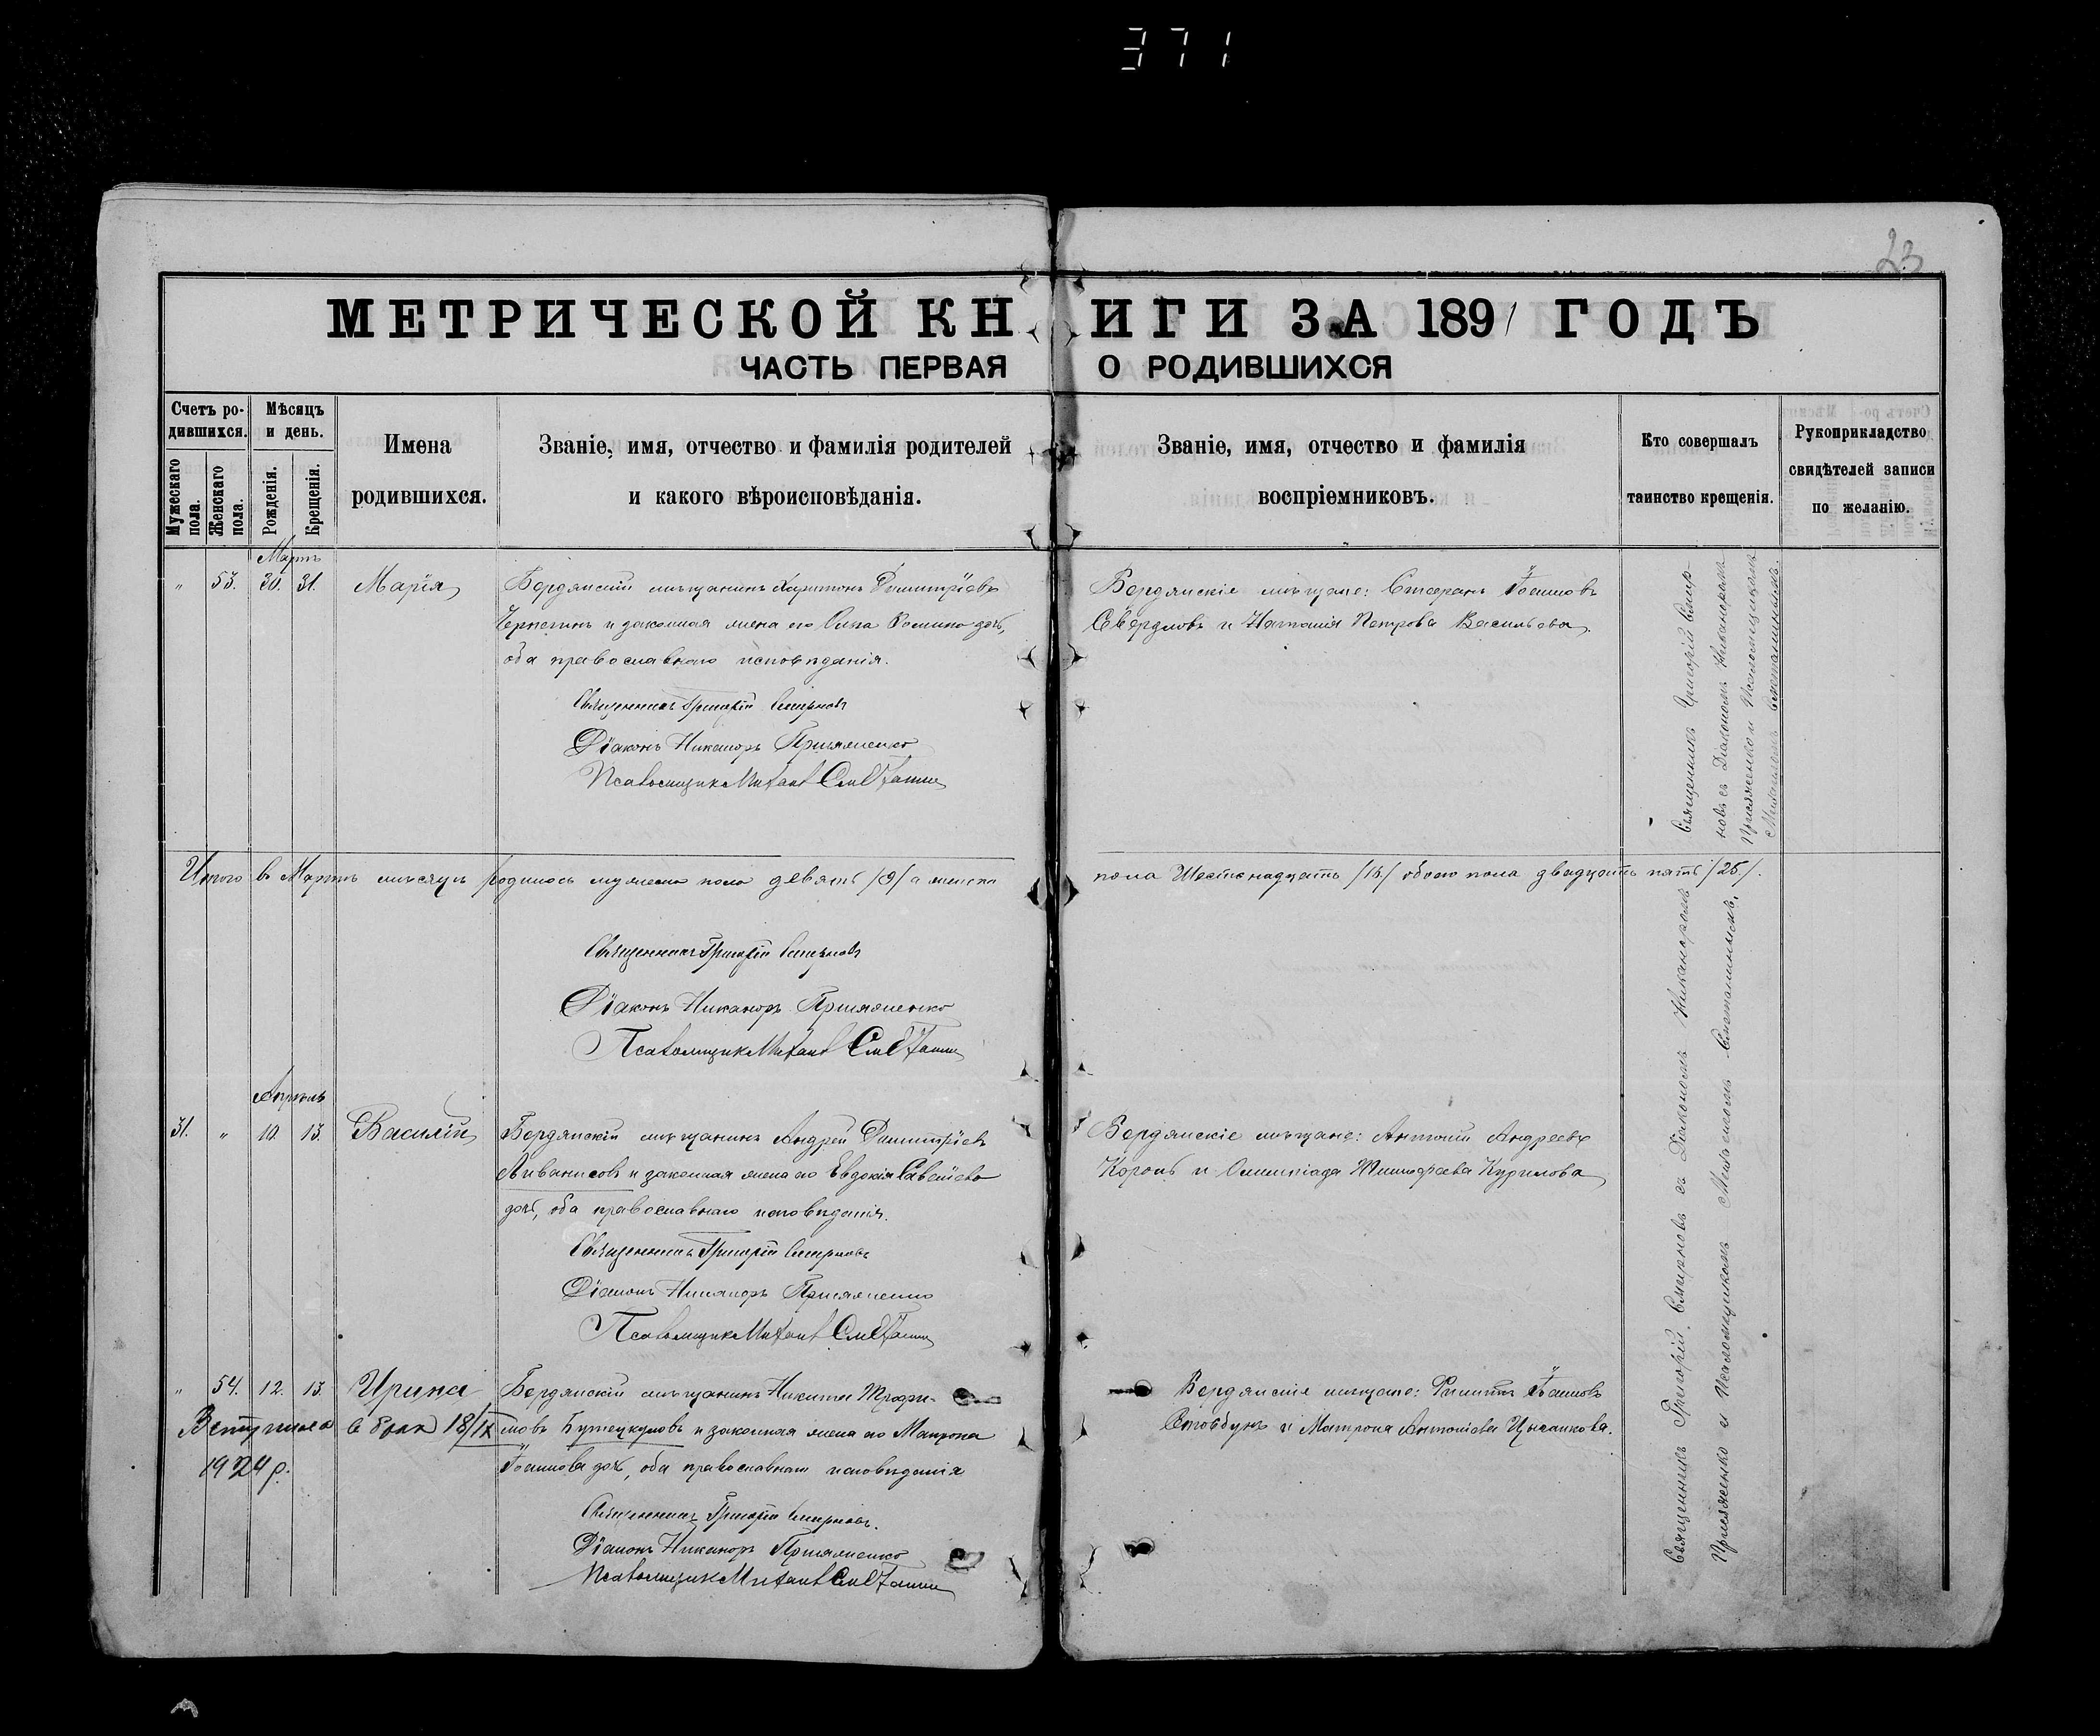 371
23
МЕТРИЧЕСКОЙ КНИГИ ЗА 1891 ГОДЪ
ЧАСТЬ ПЕРВАЯ О РОДИВШИХСЯ
Счетъ ро-
дившихся.
Мужескаго
пола.
Женскаго
пола.
Мѣсяцъ
и день.
Рожденія.
Крещенія.
Имена
родившихся.
Званіе, имя, отчество и фамилія родителей
и какого вѣроисповѣданія.
Званіе, имя, отчество и фамилія
воспріемниковъ.
Кто совершалъ
таинство крещенія.
Рукоприкладство
свидѣтелей записи
по желанію.
Мартъ
" 53. 30. 31. Марія
Бердянскій мѣщанинъ Харитонъ Димитріевъ
и законная жена его дочь,
оба православнаго исповѣданія.
Священникъ Григорій Смирновъ
Діаконъ Никаноръ Присяженко
Псаломщикъ Михаилъ
Бердянскіе мѣщане: Стефанъ Іоанновъ
Свердловъ и Наталія Петрова Васильева.
Священникъ Григорій Смир-
новъ съ Діакономъ Никаноромъ
Присяженко и Псаломщикомъ
Михаиломъ
Итого въ Мартѣ мѣсяцѣ родилось мужеска пола девять /9/ а женска
пола Шестнадцать /16/ обоего пола двадцать пять /25/.
Священникъ Григорій Смирновъ
Діаконъ Никаноръ Присяженко
Псаломщикъ Михаилъ
Апрѣль
31. " 10. 13. Василій
Бердянскій мѣщанинъ Андрей Димитріевъ
Ливанисовъ и законная жена его Евдокія Савеліева
дочь, оба православнаго исповѣданія.
Священникъ Григорій Смирновъ
Діаконъ Никаноръ Присяженко
Псаломщикъ Михаилъ
Бердянскіе мѣщане: Антоній Андреевъ
и Олимпіада Тимофеева Курилова
Священникъ Григорій Смирновъ съ Діакономъ Никаноромъ
Присяженко и Псаломщикомъ Михаиломъ
" 54. 12. 13. Ирина
Бердянскій мѣщанинъ Никита Трофи-
мовъ и законная жена его Матрона
Іоаннова дочь, оба православнаго исповѣданія
Священникъ Григорій Смирновъ.
Діаконъ Никаноръ Присяженко
Псаломщикъ Михаилъ
Вступила в брак 18/IX
1924 р.
Бердянскіе мѣщане: Филиппъ Іоанновъ
Стовбунъ и Матрона Антоніева Цысанкова.